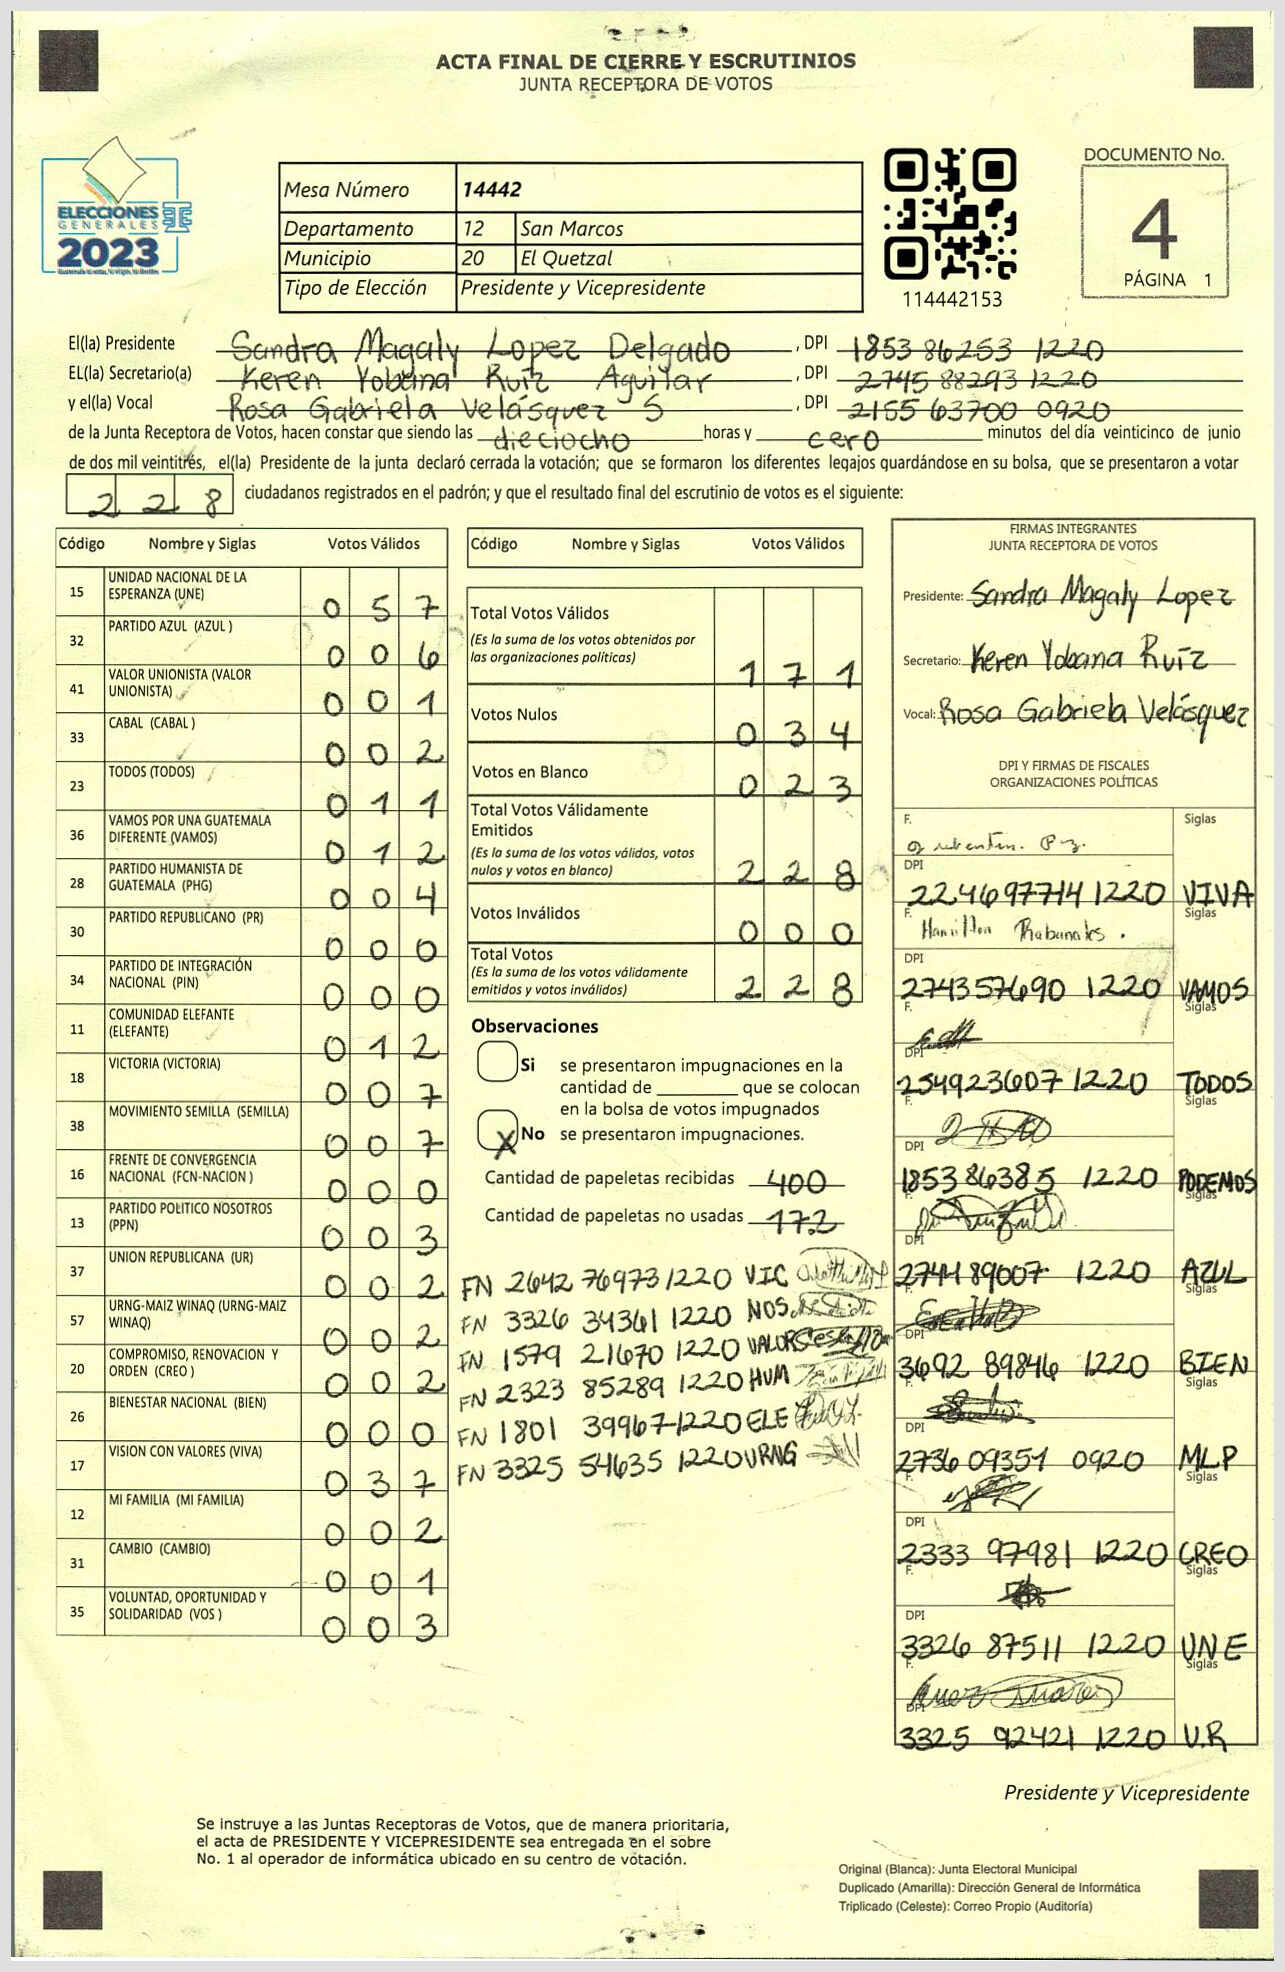 ACTA FINAL DE CIERRE Y ESCRUTINIOS
JUNTA RECEPTORA DE VOTOS
ELECCIONES
GENERALES
2023
Mesa Número 14442
Departamento 12 San Marcos
Municipio 20 El Quetzal
Tipo de Elección Presidente y Vicepresidente
114442153
DOCUMENTO No.
4
PÁGINA 1
El(la) Presidente Sandra Magaly Lopez Delgado , DPI 1853 86253 1220
EL(la) Secretario(a) Keren Yobana Ruiz Aguilar , DPI 2745 88293 1220
y el(la) Vocal Rosa Gabriela Velásquez S , DPI 2155 63700 0920
de la Junta Receptora de Votos, hacen constar que siendo las dieciocho horas y cero minutos del día veinticinco de junio
de dos mil veintitrés, el(la) Presidente de la junta declaró cerrada la votación; que se formaron los diferentes legajos quardándose en su bolsa, que se presentaron a votar
228 ciudadanos registrados en el padrón; y que el resultado final del escrutinio de votos es el siguiente:
Código Nombre y Siglas Votos Válidos
15 UNIDAD NACIONAL DE LA
ESPERANZA (UNE) 0 5 7
32 PARTIDO AZUL (AZUL ) 0 0 6
41 VALOR UNIONISTA (VALOR
UNIONISTA) 0 0 1
33 CABAL (CABAL ) 0 0 2
23 TODOS (TODOS) 0 1 1
36 VAMOS POR UNA GUATEMALA
DIFERENTE (VAMOS) 0 1 2
28 PARTIDO HUMANISTA DE
GUATEMALA (PHG) 0 0 4
30 PARTIDO REPUBLICANO (PR) 0 0 0
34 PARTIDO DE INTEGRACIÓN
NACIONAL (PIN) 0 0 0
11 COMUNIDAD ELEFANTE
(ELEFANTE) 0 1 2
18 VICTORIA (VICTORIA) 0 0 7
38 MOVIMIENTO SEMILLA (SEMILLA) 0 0 7
16 FRENTE DE CONVERGENCIA
NACIONAL (FCN-NACION ) 0 0 0
13 PARTIDO POLITICO NOSOTROS
(PPN) 0 0 3
37 UNION REPUBLICANA (UR) 0 0 2
57 URNG-MAIZ WINAQ (URNG-MAIZ
WINAQ) 0 0 2
20 COMPROMISO, RENOVACION Y
ORDEN (CREO ) 0 0 2
26 BIENESTAR NACIONAL (BIEN) 0 0 0
17 VISION CON VALORES (VIVA) 0 3 7
12 MI FAMILIA (MI FAMILIA) 0 0 2
31 CAMBIO (CAMBIO) 0 0 1
35 VOLUNTAD, OPORTUNIDAD Y
SOLIDARIDAD (VOS ) 0 0 3
Código Nombre y Siglas Votos Válidos
Total Votos Válidos
(Es la suma de los votos obtenidos por
las organizaciones políticas) 1 7 1
Votos Nulos 0 3 4
Votos en Blanco 0 2 3
Total Votos Válidamente
Emitidos
(Es la suma de los votos válidos, votos
nulos y votos en blanco) 2 2 8
Votos Inválidos 0 0 0
Total Votos
(Es la suma de los votos válidamente
emitidos y votos inválidos) 2 2 8
Observaciones
Si se presentaron impugnaciones en la
cantidad de ________ que se colocan
en la bolsa de votos impugnados
X No se presentaron impugnaciones.
Cantidad de papeletas recibidas 400
Cantidad de papeletas no usadas 172
FN 2642 76973 1220 VIC
FN 3326 34361 1220 NOS
FN 1579 21670 1220 VALOR
FN 2323 85289 1220 HUM
FN 1801 39967 1220 ELE
FN 3325 54635 1220 URNG
FIRMAS INTEGRANTES
JUNTA RECEPTORA DE VOTOS
Presidente: Sandra Magaly Lopez
Secretario: Keren Yobana Ruiz
Vocal: Rosa Gabriela Velásquez
DPI Y FIRMAS DE FISCALES
ORGANIZACIONES POLÍTICAS
F. Siglas
DPI
224697714 1220 VIVA
F. Hamilton Rabanales. Siglas
DPI
274357690 1220 VAMOS
F. Siglas
DPI
254923607 1220 TODOS
F. Siglas
DPI
1853 86385 1220 PODEMOS
F. Siglas
DPI
2741 89007 1220 AZUL
DPI
3692 89846 1220 BIEN
F. Siglas
DPI
2736 09351 0920 MLP
F. Siglas
DPI
2333 97981 1220 CREO
F. Siglas
DPI
3326 87511 1220 UNE
F. Siglas
DPI
3325 92421 1220 U.R
Presidente y Vicepresidente
Se instruye a las Juntas Receptoras de Votos, que de manera prioritaria,
el acta de PRESIDENTE Y VICEPRESIDENTE sea entregada en el sobre
No. 1 al operador de informática ubicado en su centro de votación.
Original (Blanca): Junta Electoral Municipal
Duplicado (Amarilla): Dirección General de Informática
Triplicado (Celeste): Correo Propio (Auditoría)